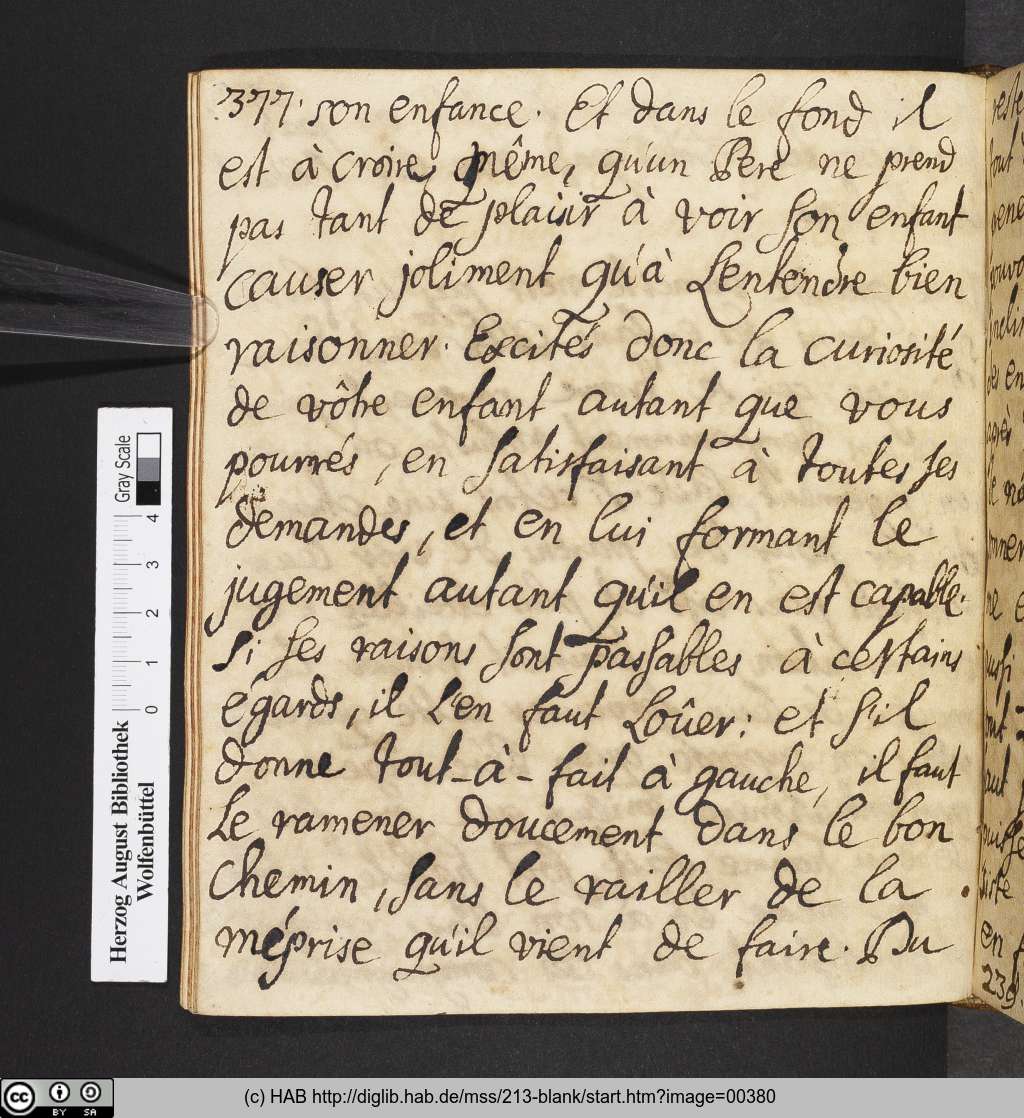 377. son enfance. Et dans le fond il
est à croire même, qu'un Pere ne prend
pas tant de plaisir à voir son enfant
causer joliment qu'à L'entendre bien
raisonner. Excités donc la curiosité
de vôtre enfant autant que vous
pourrés, en satisfaisant à toutes ses
demandes, et en lui formant le
jugement autant qu'il en est capable.
Si ses raisons sont passables à certains
égards, il L'en faut Loûer: et s'il
donne tout-à-fait à gauche, il faut
Le ramener doucement dans le bon
chemin, sans le railler de la
méprise qu'il vient de faire. Du
en
239
Gray Scale
0 1 2 3 4
Herzog August Bibliothek
Wolfenbüttel
cc BY SA
(c) HAB http://diglib.hab.de/mss/213-blank/start.htm?image=00380